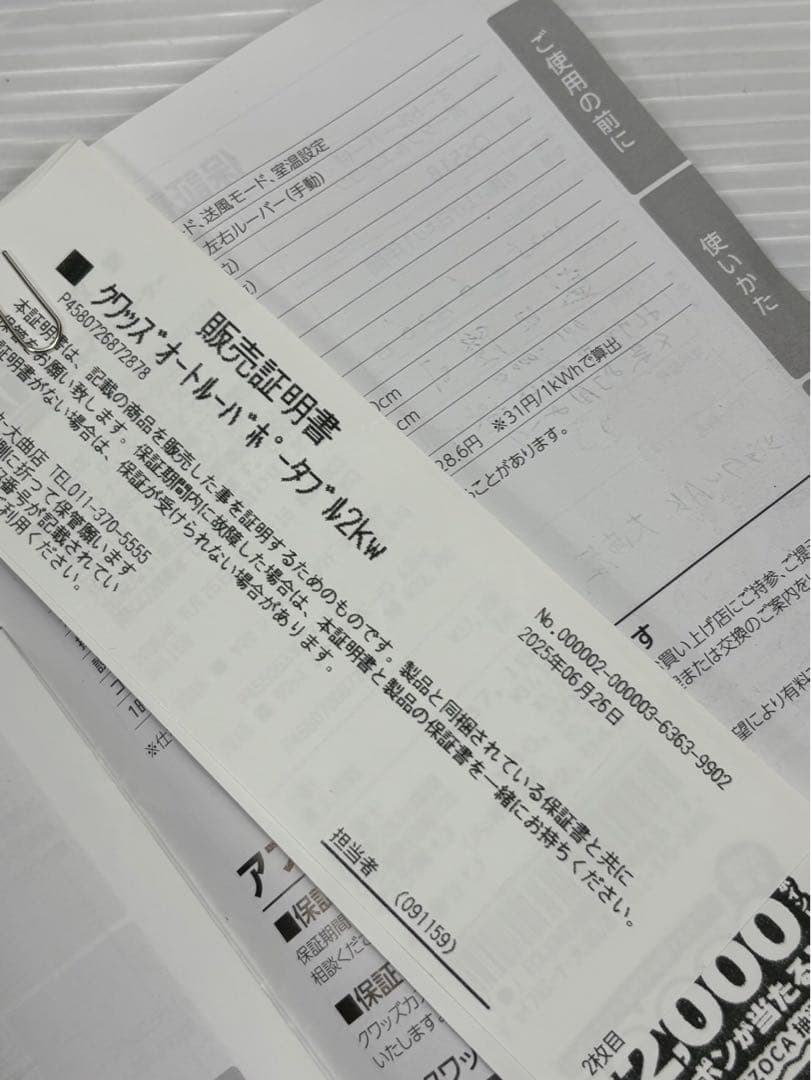 ご使用の前に
使いかた
ド、送風モード、室温設定
左右ルーバー(手動)
cm
cm
28.6円 ※31円/1kWhで算出
ことがあります。
販売証明書
■ クワッズ オートルーバポータブル2Kw
P4580726872878
No.000002-000003-6363-9902
2025年06月26日
本証明書は、記載の商品を販売した事を証明するためのものです。製品と同梱されている保証書と共に
保管をお願い致します。保証期間内に故障した場合は、本証明書と製品の保証書を一緒にお持ちください。
証明書がない場合は、保証が受けられない場合があります。
大曲店 TEL011-370-5555
側に折って保管願います
番号が記載されてい
ご利用ください。
担当者 (091159)
買い上げ店にご持参、ご提
または交換のご案内を
望により有料
※仕
■保証
保証期間
相談くださ
■保証
クワッズカ
いたします。
2枚目
2,000
ポンが当たる
ZOCA 抽選